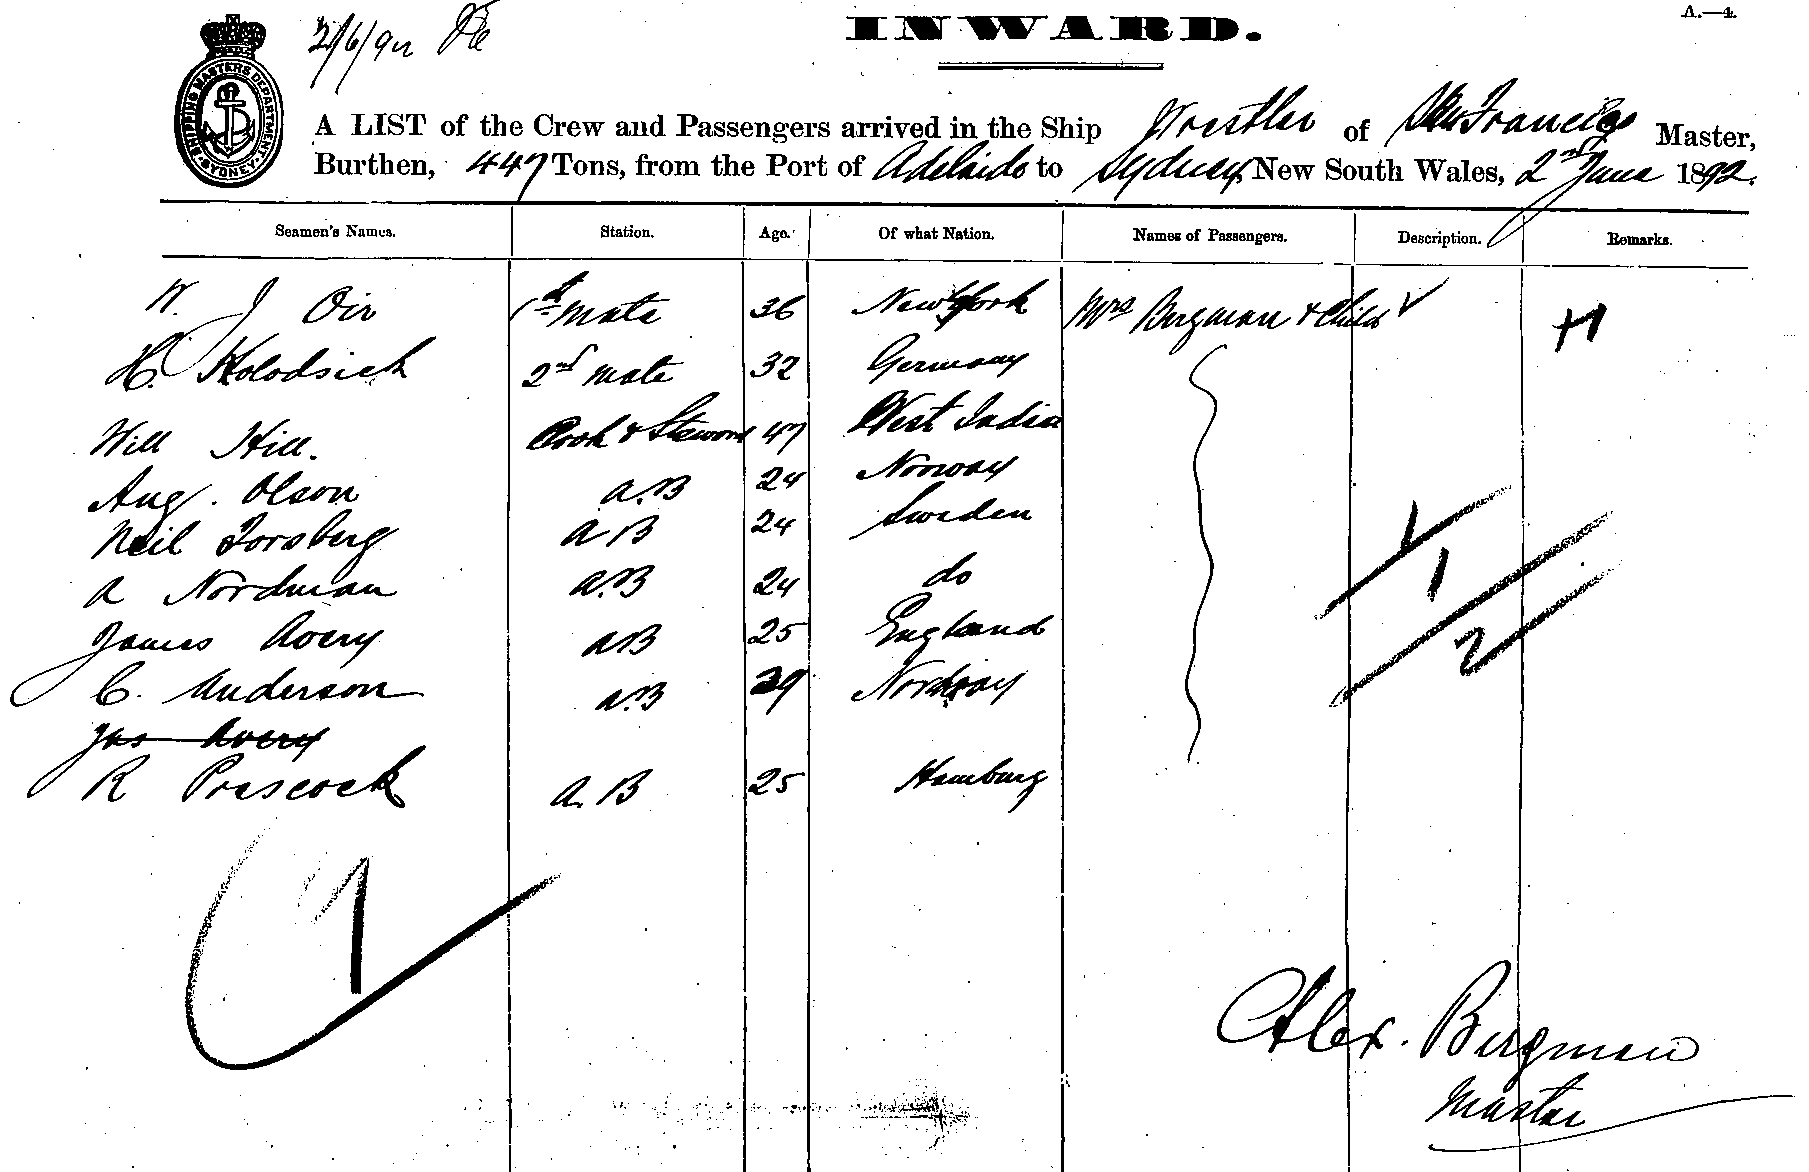 2/6/92
INWARD.
A.—4.
SHIPPING MASTERS DEPARTMENT SYDNEY.
A LIST of the Crew and Passengers arrived in the Ship Wrestler of San Francisco Master,
Burthen, 447 Tons, from the Port of Adelaide to Sydney New South Wales, 2nd June 1892.
Seamen's Names. Station. Age. Of what Nation. Names of Passengers. Description. Remarks.
W. J Oir 1st mate 36 New York Mrs Bergman & Child
H. 2nd mate 32 Germany
Will Hill. Cook & Steward 47 West India
Aug. Olson A.B 24 Norway
Neil Forsberg A B 24 Sweden
A Nordman A.B 24 do
James Avery A B 25 England
C. Anderson A.B 29 Norway
Jas Avery
R Prescock A. B 25 Hamburg
1
1
2
Alex. Bergman
Master